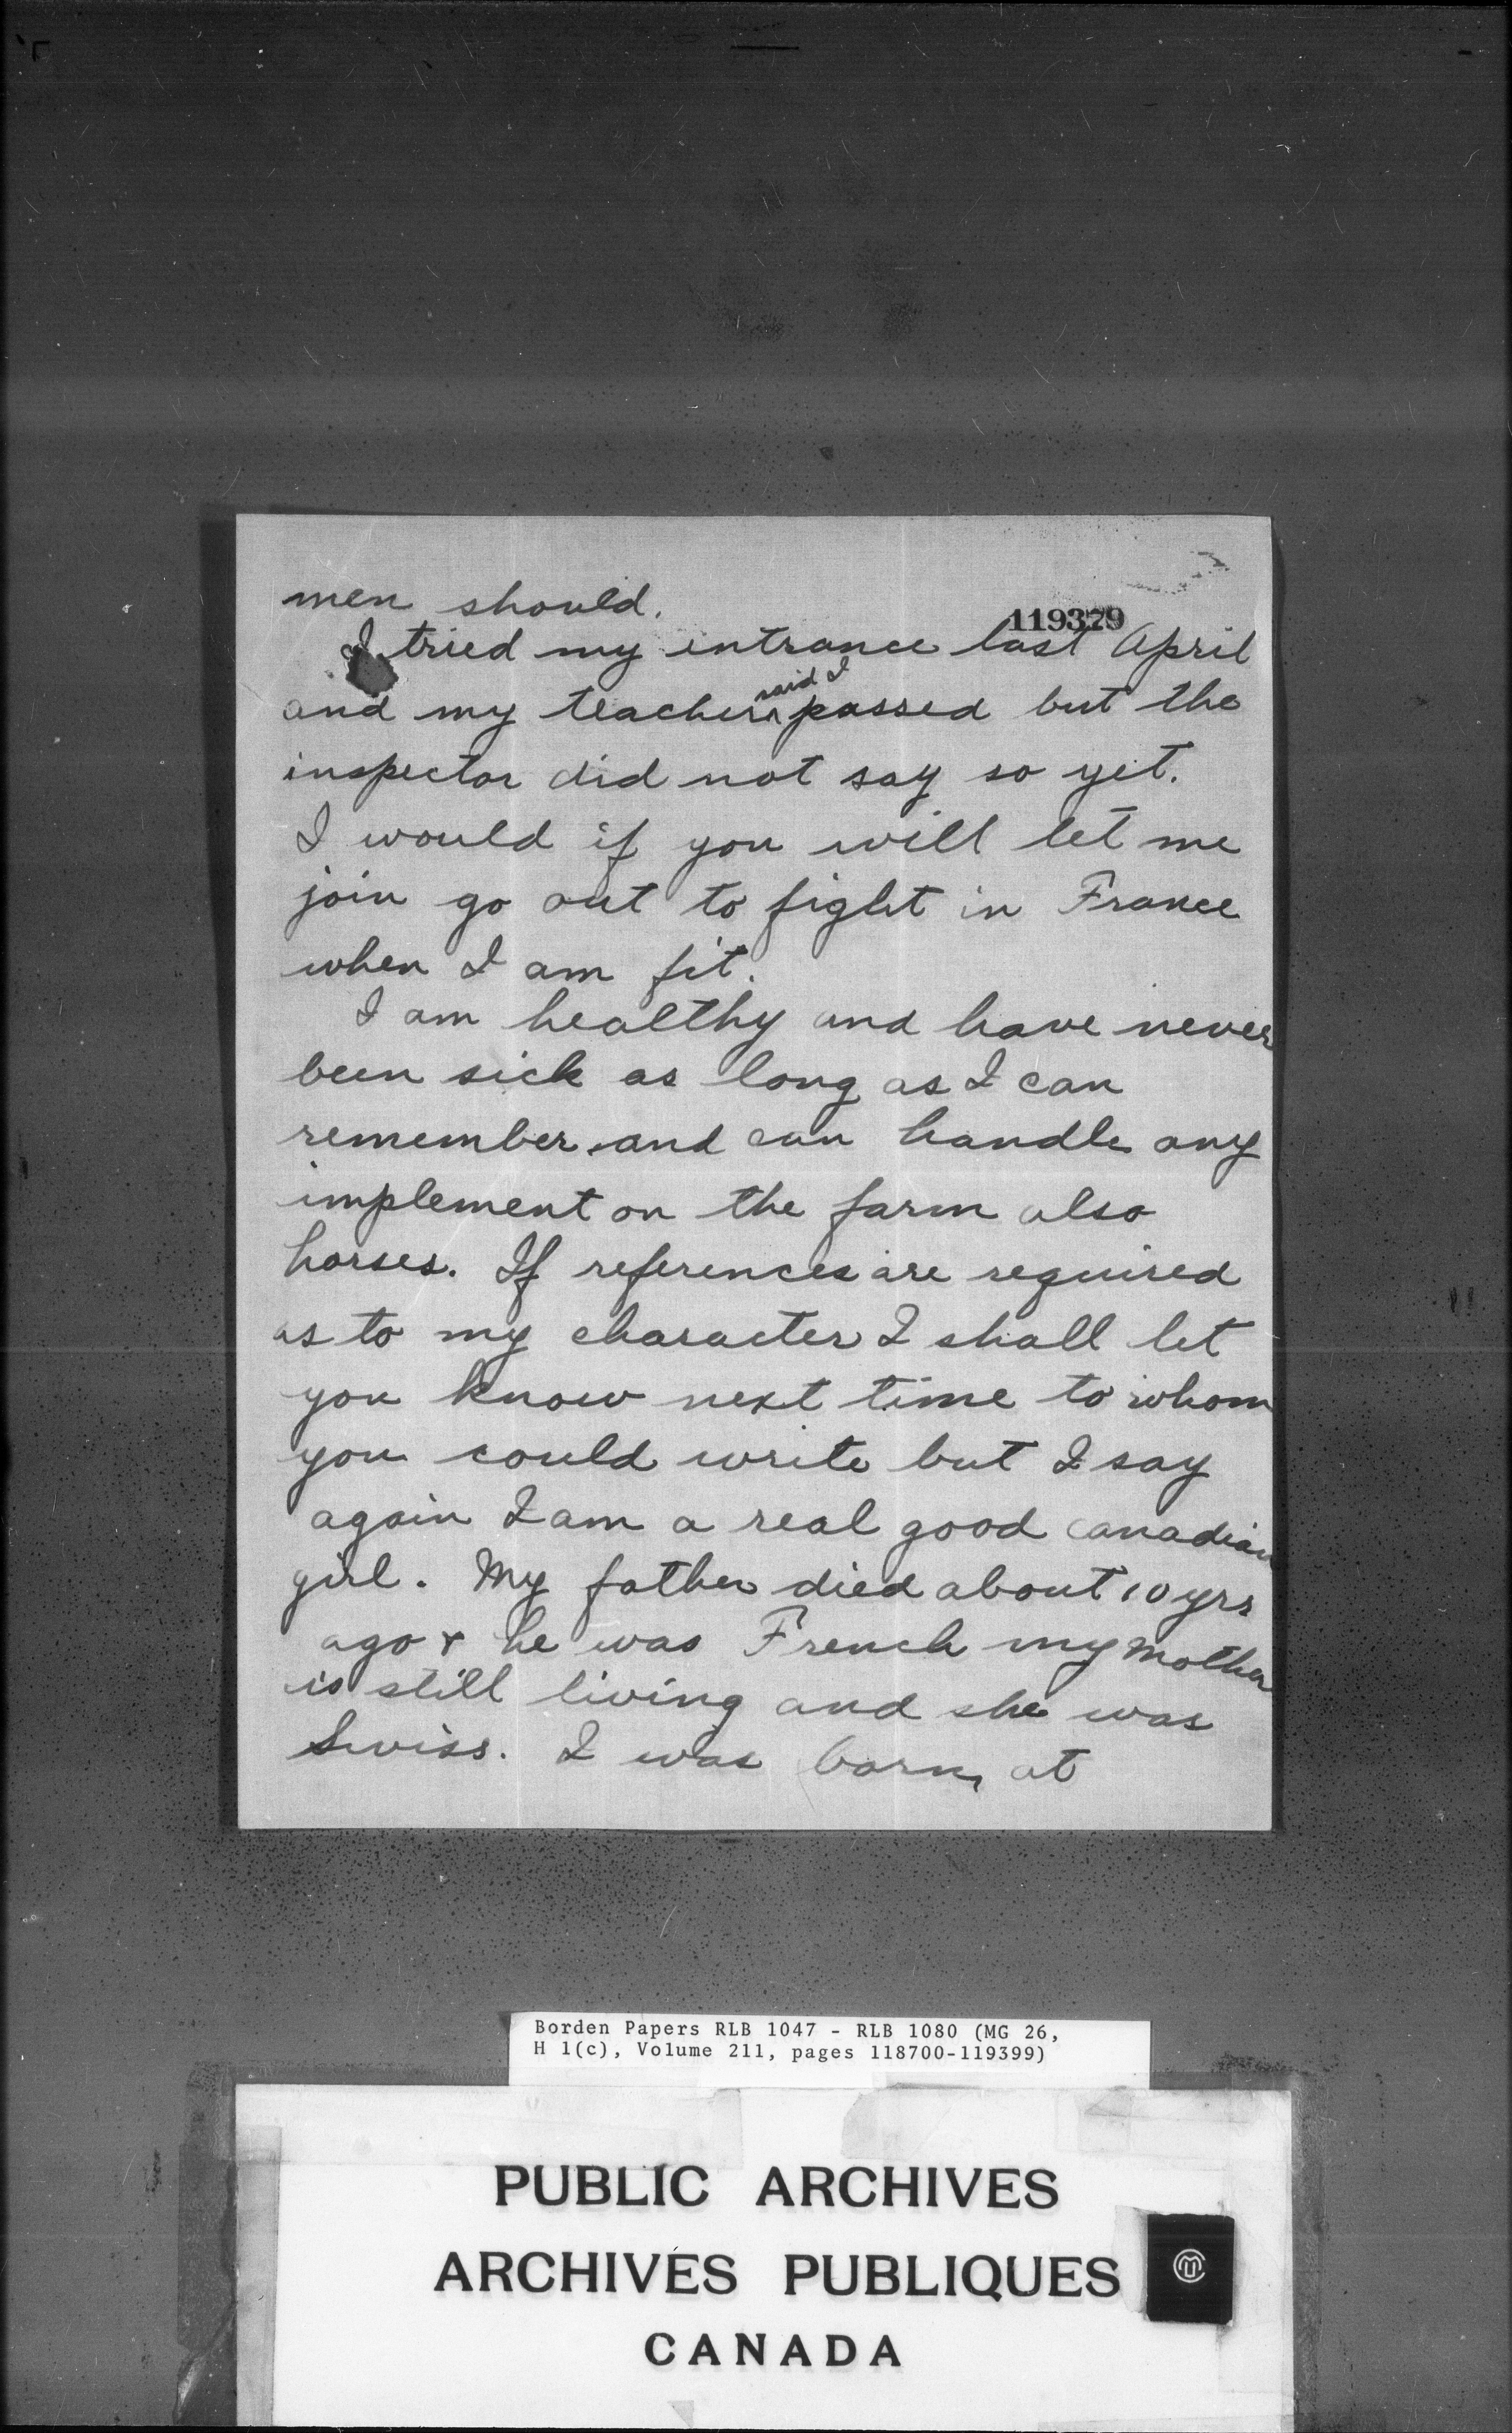 men should.
119379
I tried my entrance last April
and my teacher said I passed but the
inspector did not say so yet.
I would if you will let me
join go out to fight in France
when I am fit.
I am healthy and have never
been sick as long as I can
remember and can handle any
implement on the farm also
horses. If references are required
as to my character I shall let
you know next time to whom
you could write but I say
again I am a real good canadian
girl. My father died about 10 yrs
ago & he was French my Mother
is still living and she was
Swiss. I was born at
Borden Papers RLB 1047 - RLB 1080 (MG 26,
H 1(c), Volume 211, pages 118700-119399)
PUBLIC ARCHIVES
ARCHIVES PUBLIQUES
CANADA